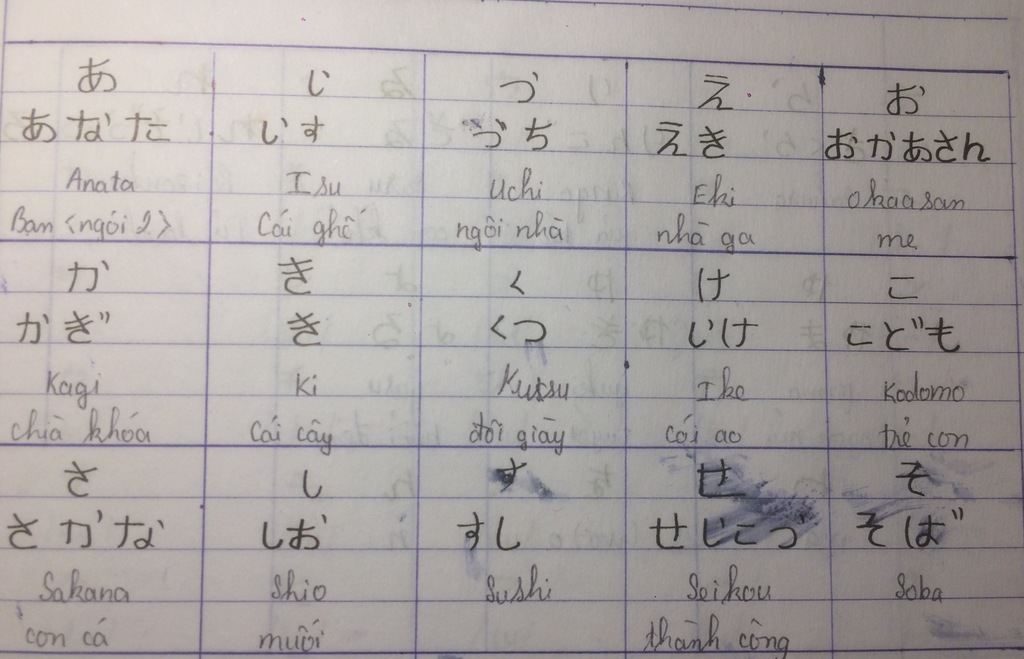 あ い う え お
あなた いす うち えき おかあさん
Anata Isu Uchi Eki Okaasan
Bạn <ngôi 2> Cái ghế ngôi nhà nhà ga mẹ
か き く け こ
かぎ き くつ いけ こども
Kagi Ki Kutsu Ike Kodomo
chìa khóa Cái cây đôi giày cái ao trẻ con
さ し す せ そ
さかな しお すし せいこう そば
Sakana Shio Sushi Seikou Soba
con cá muối thành công